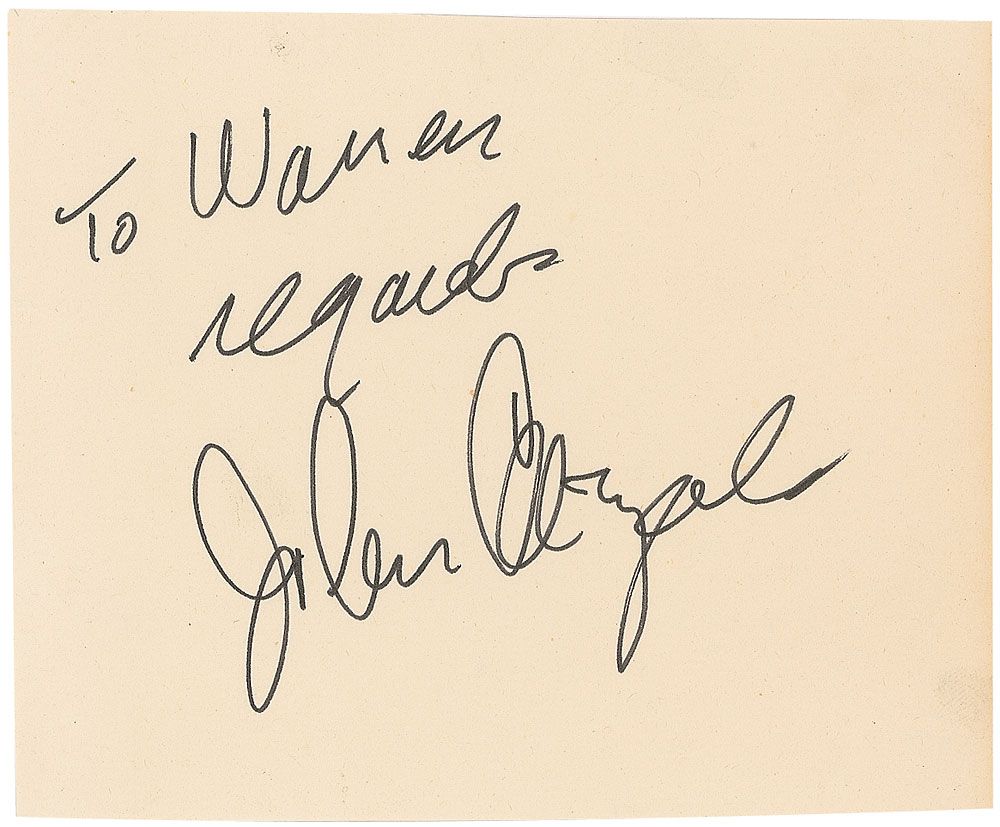 To Warren
regards
John